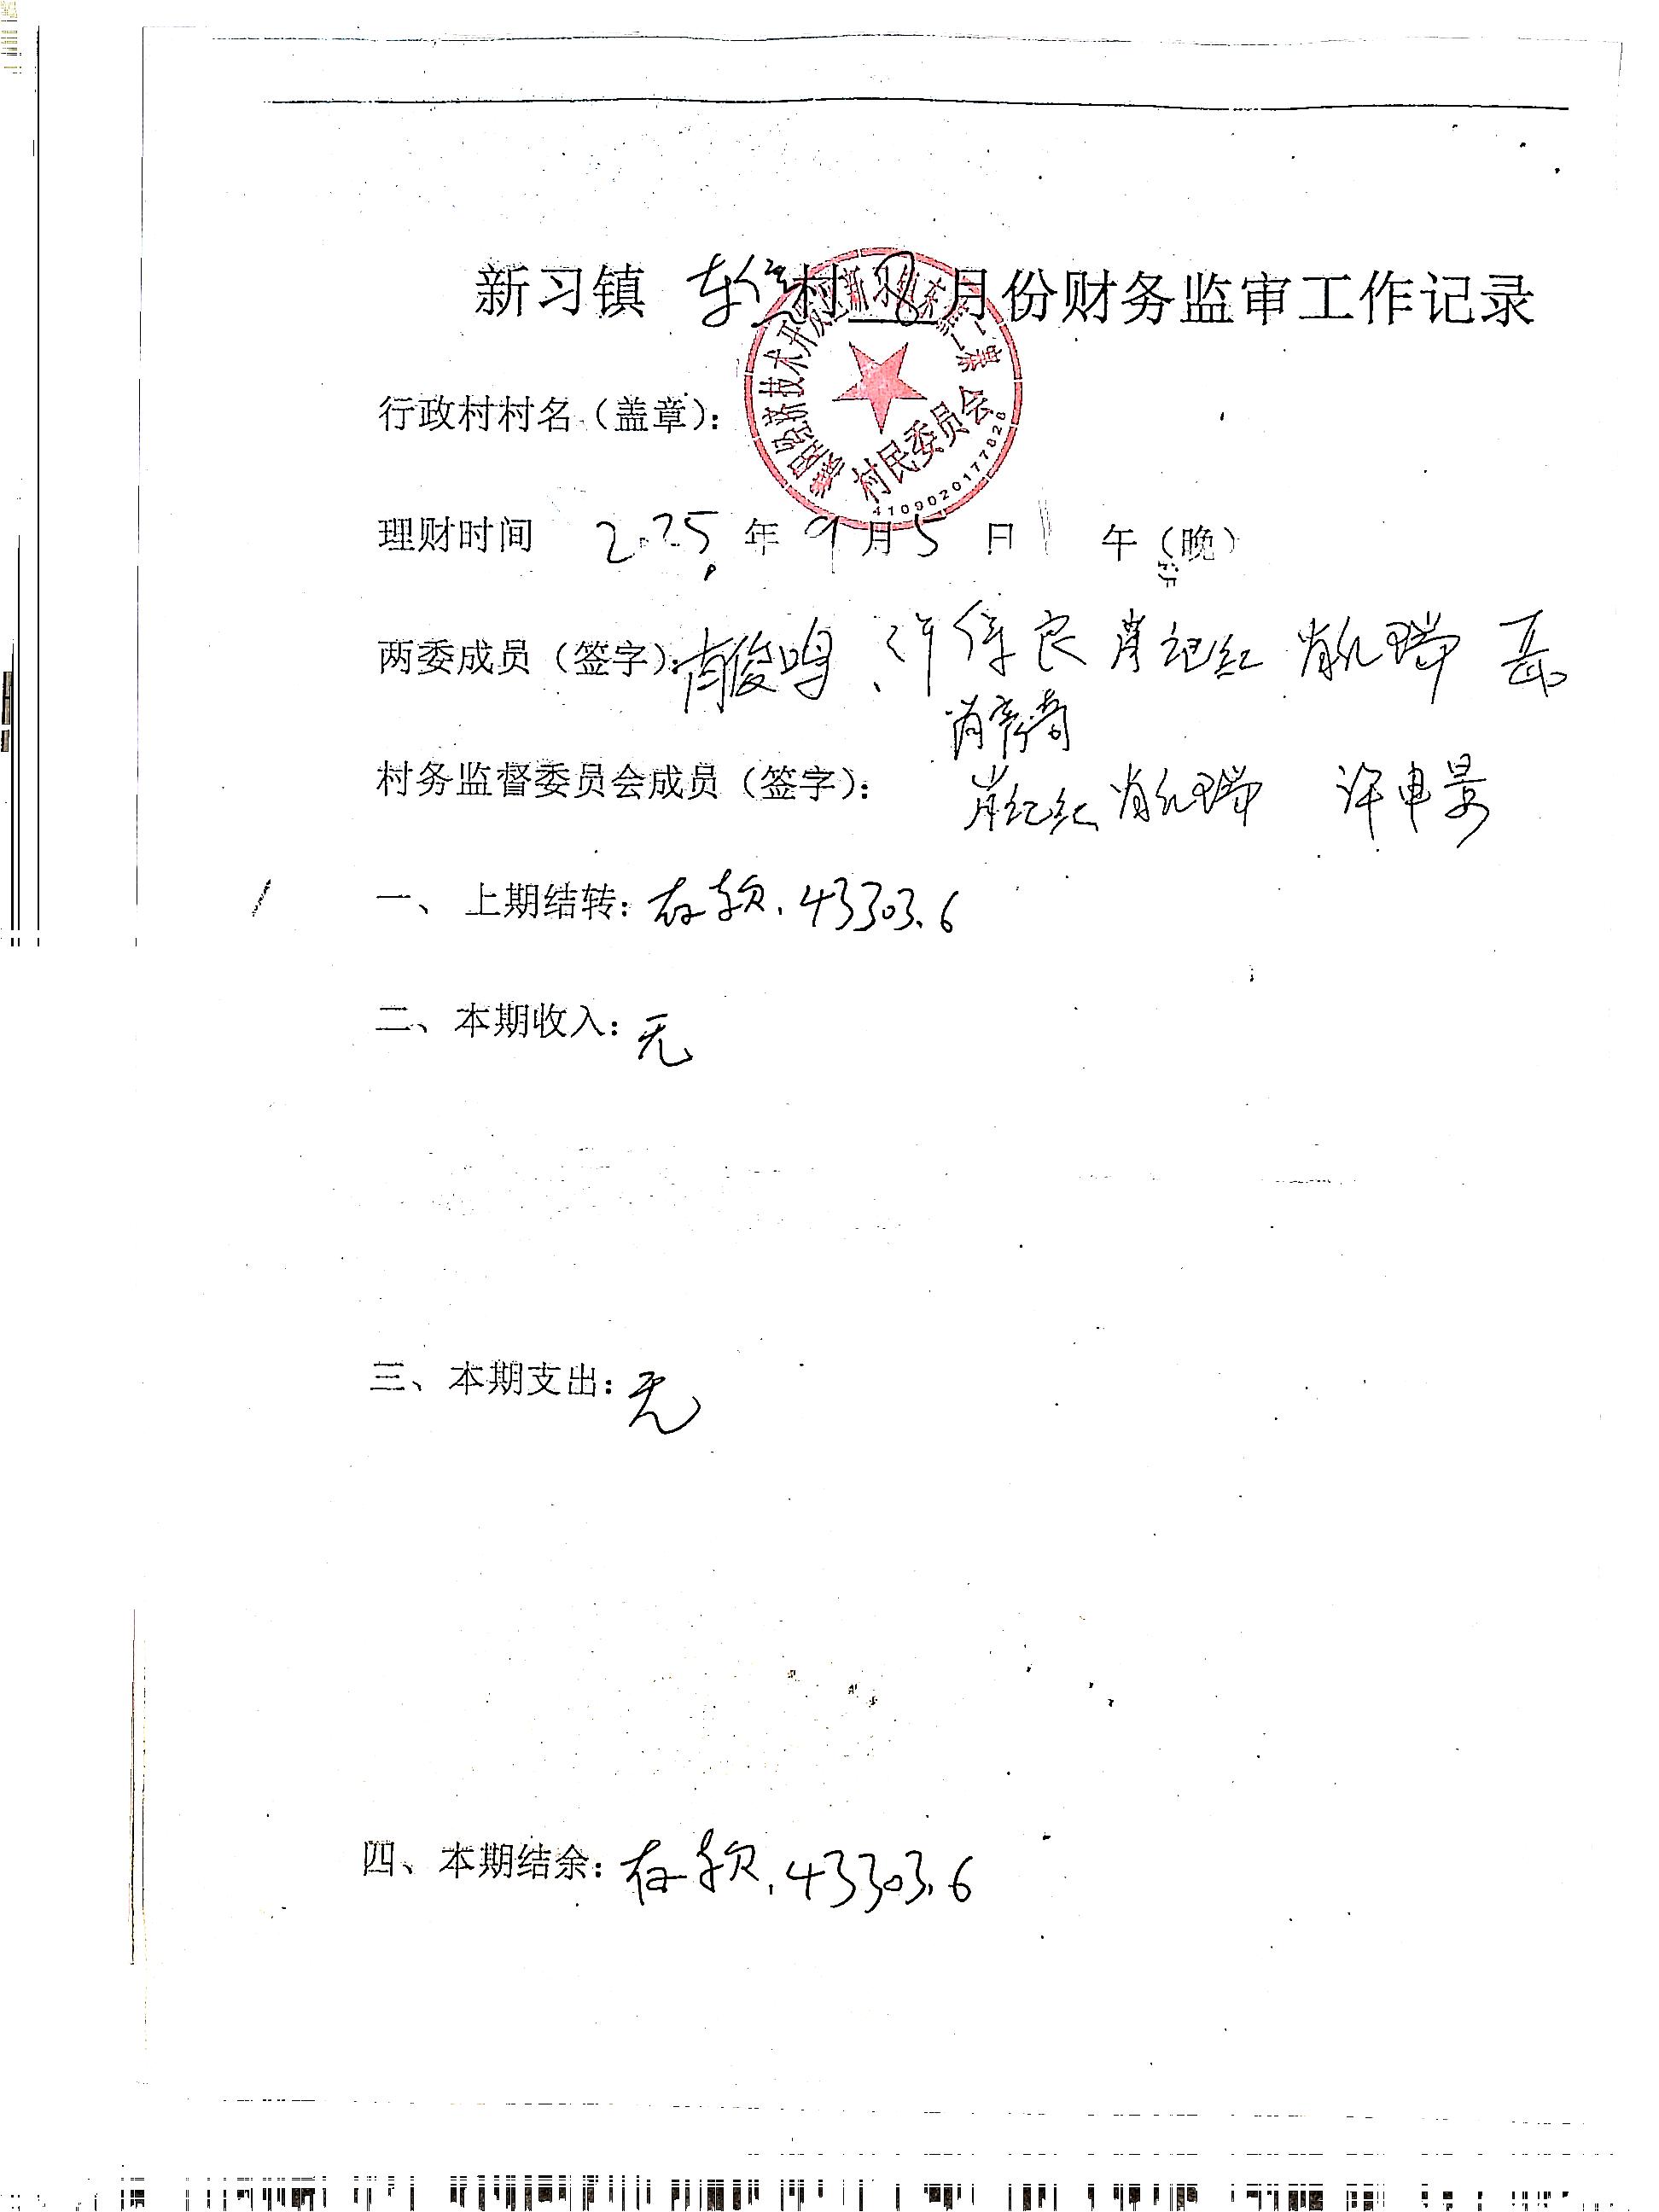 新习镇 东 村 8 月份财务监审工作记录
行政村村名（盖章）：
村民委员会
4109020177026
理财时间 2025 年 9 月 5 日 午（晚）
两委成员（签字）：肖俊鸣、许 良 肖记红 肖 瑞
肖
村务监督委员会成员（签字）： 肖纪红 肖 瑞 许电景
一、 上期结转：存款．43303.6
二、本期收入：无
三、本期支出：无
四、本期结余：存款．43303.6